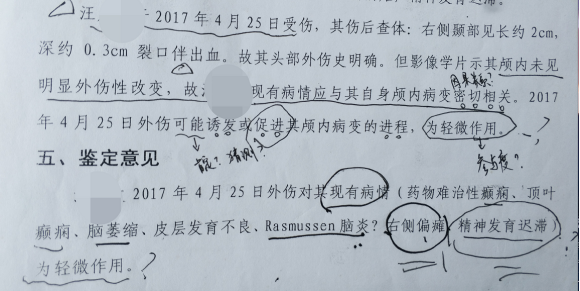 汪 2017年4月25日受伤，其伤后查体：右侧颞部见长约2cm，
深约0.3cm裂口伴出血。故其头部外伤史明确。但影像学片示其颅内未见
因果关系？
明显外伤性改变，故 现有病情应与其自身颅内病变密切相关。2017
年4月25日外伤可能诱发或促进其颅内病变的进程，为轻微作用。 ？
猜测？ 参与度？
五、鉴定意见
2017年4月25日外伤对其现有病情（药物难治性癫痫、顶叶
癫痫、脑萎缩、皮层发育不良、Rasmussen脑炎？右侧偏瘫，精神发育迟滞）
为轻微作用。？